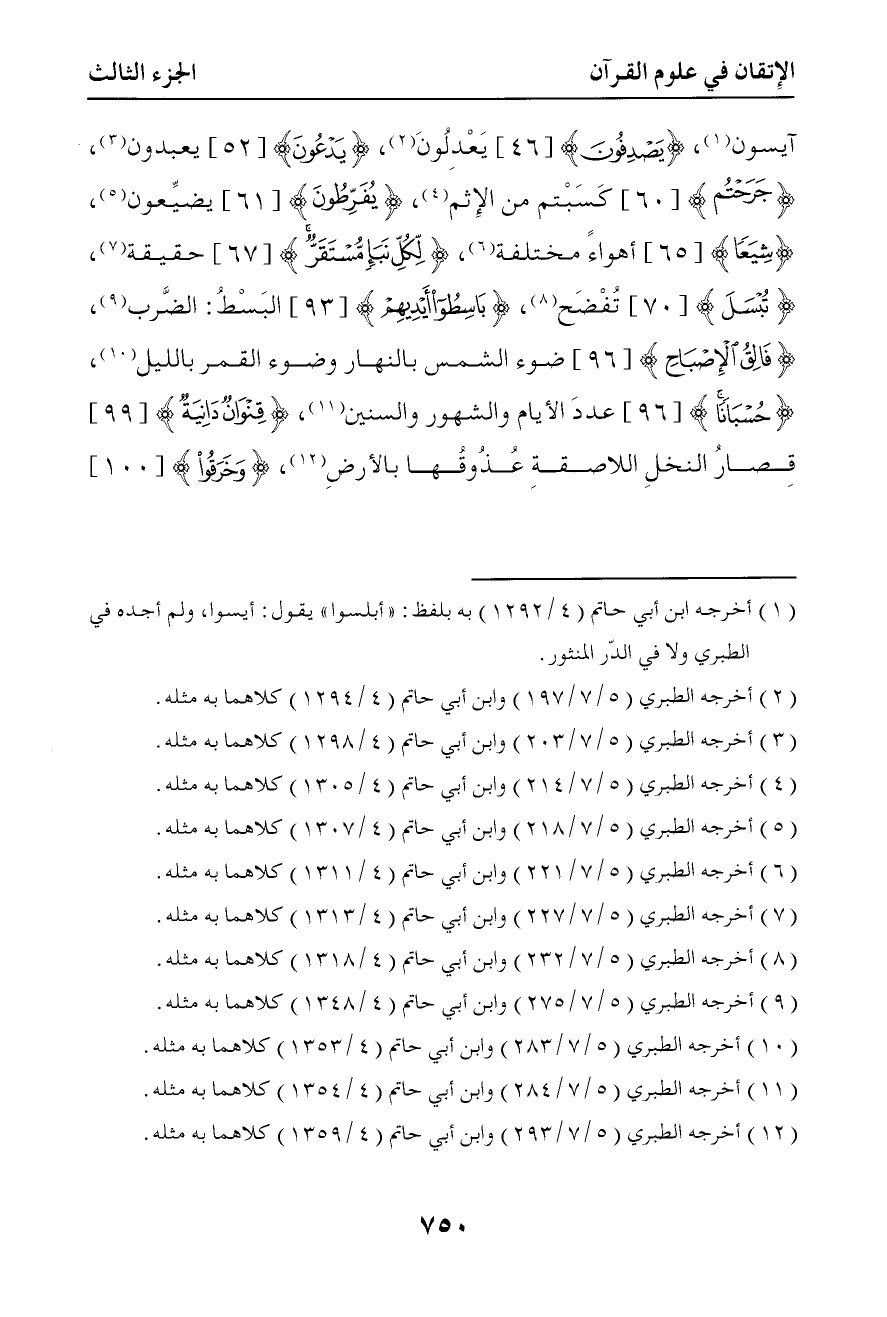 الإتقان في علوم القرآن الجزء الثالث
آيسون(١)، ﴿يَصْدِفُونَ﴾ [٤٦] يَعْدِلُونَ(٢)، ﴿يَدْعُونَ﴾ [٥٢] يعبدون(٣)،
﴿جَرَحْتُم﴾ [٦٠] كَسَبْتم من الإثم(٤)، ﴿يُفَرِّطُونَ﴾ [٦١] يضيِّعون(٥)،
﴿شِيَعًا﴾ [٦٥] أهواءً مختلفة(٦)، ﴿لِّكُلِّ نَبَإٍ مُّسْتَقَرٌّ ۚ﴾ [٦٧] حقيقة(٧)،
﴿تُبْسَلَ﴾ [٧٠] تُفْضَح(٨)، ﴿بَاسِطُوٓا۟ أَيْدِيهِمْ﴾ [٩٣] البَسْطُ: الضَّرب(٩)،
﴿فَالِقُ ٱلْإِصْبَاحِ﴾ [٩٦] ضوء الشمس بالنهار وضوء القمر بالليل(١٠)،
﴿حُسْبَانًا ۚ﴾ [٩٦] عددَ الأيام والشهور والسنين(١١)، ﴿قِنْوَانٌ دَانِيَةٌ﴾ [٩٩]
قِصارُ النخلِ اللاصقةِ عُذُوقُها بالأرضِ(١٢)، ﴿وَخَرَقُوا۟﴾ [١٠٠]
(١) أخرجه ابن أبي حاتم (٤/١٢٩٢) به بلفظ: «أبلسوا» يقول: أيسوا، ولم أجده في
الطبري ولا في الدّر المنثور.
(٢) أخرجه الطبري (٥/٧/١٩٧) وابن أبي حاتم (٤/١٢٩٤) كلاهما به مثله.
(٣) أخرجه الطبري (٥/٧/٢٠٣) وابن أبي حاتم (٤/١٢٩٨) كلاهما به مثله.
(٤) أخرجه الطبري (٥/٧/٢١٤) وابن أبي حاتم (٤/١٣٠٥) كلاهما به مثله.
(٥) أخرجه الطبري (٥/٧/٢١٨) وابن أبي حاتم (٤/١٣٠٧) كلاهما به مثله.
(٦) أخرجه الطبري (٥/٧/٢٢١) وابن أبي حاتم (٤/١٣١١) كلاهما به مثله.
(٧) أخرجه الطبري (٥/٧/٢٢٧) وابن أبي حاتم (٤/١٣١٣) كلاهما به مثله.
(٨) أخرجه الطبري (٥/٧/٢٣٢) وابن أبي حاتم (٤/١٣١٨) كلاهما به مثله.
(٩) أخرجه الطبري (٥/٧/٢٧٥) وابن أبي حاتم (٤/١٣٤٨) كلاهما به مثله.
(١٠) أخرجه الطبري (٥/٧/٢٨٣) وابن أبي حاتم (٤/١٣٥٣) كلاهما به مثله.
(١١) أخرجه الطبري (٥/٧/٢٨٤) وابن أبي حاتم (٤/١٣٥٤) كلاهما به مثله.
(١٢) أخرجه الطبري (٥/٧/٢٩٣) وابن أبي حاتم (٤/١٣٥٩) كلاهما به مثله.
٧٥٠